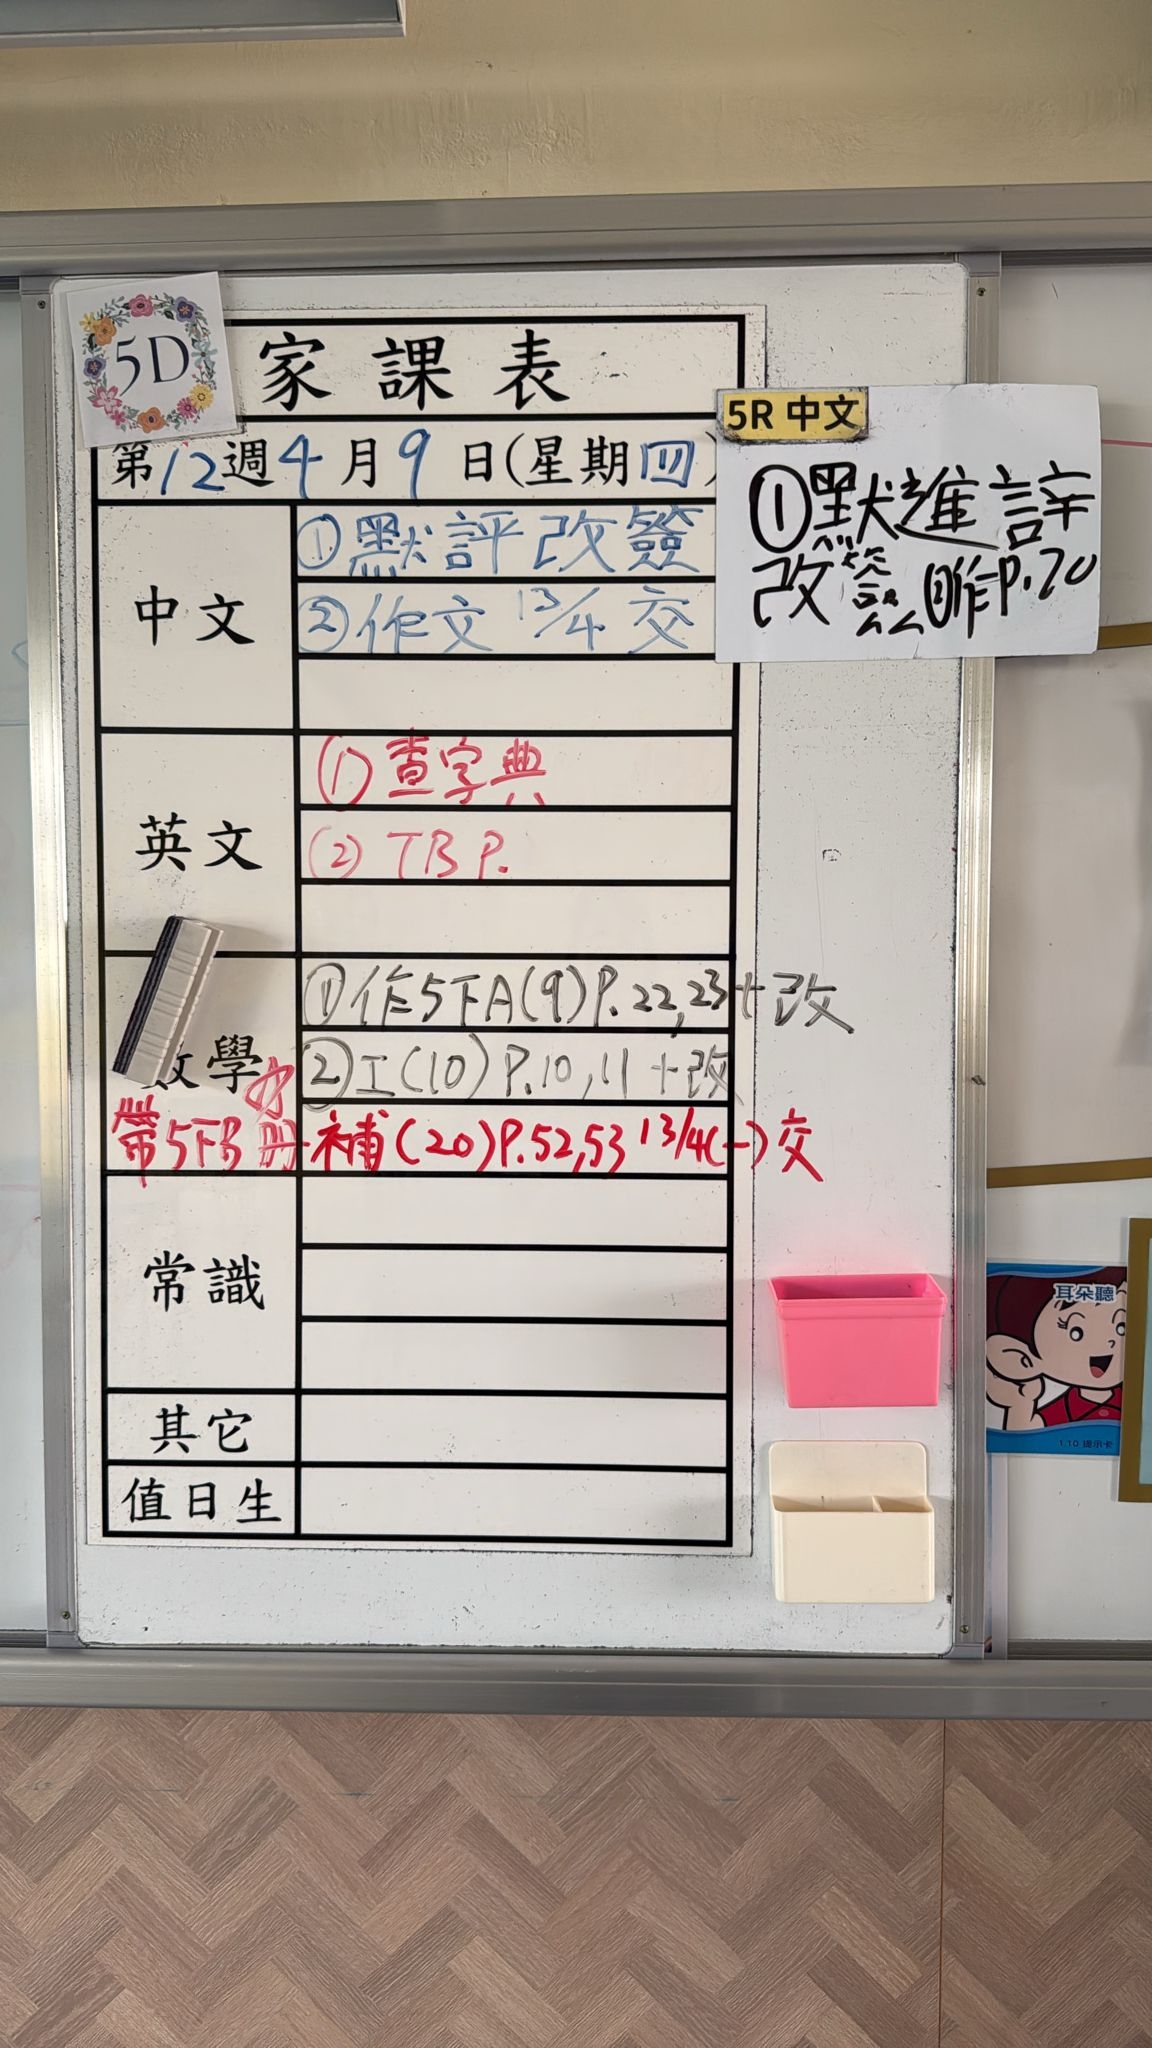 5D
家課表
第12週4月9日(星期四)
5R 中文
①默進評
改簽 ②作P.70
中文
①默評改簽
②作文 13/4 交
英文
(1) 查字典
(2) TB P.
數學
①作5下A(9)P.22,23+改
②工(10)P.10,11+改
帶5下B
補(20)P.52,53 13/4(一)交
常識
其它
值日生
耳朵聽
1.10 提示卡